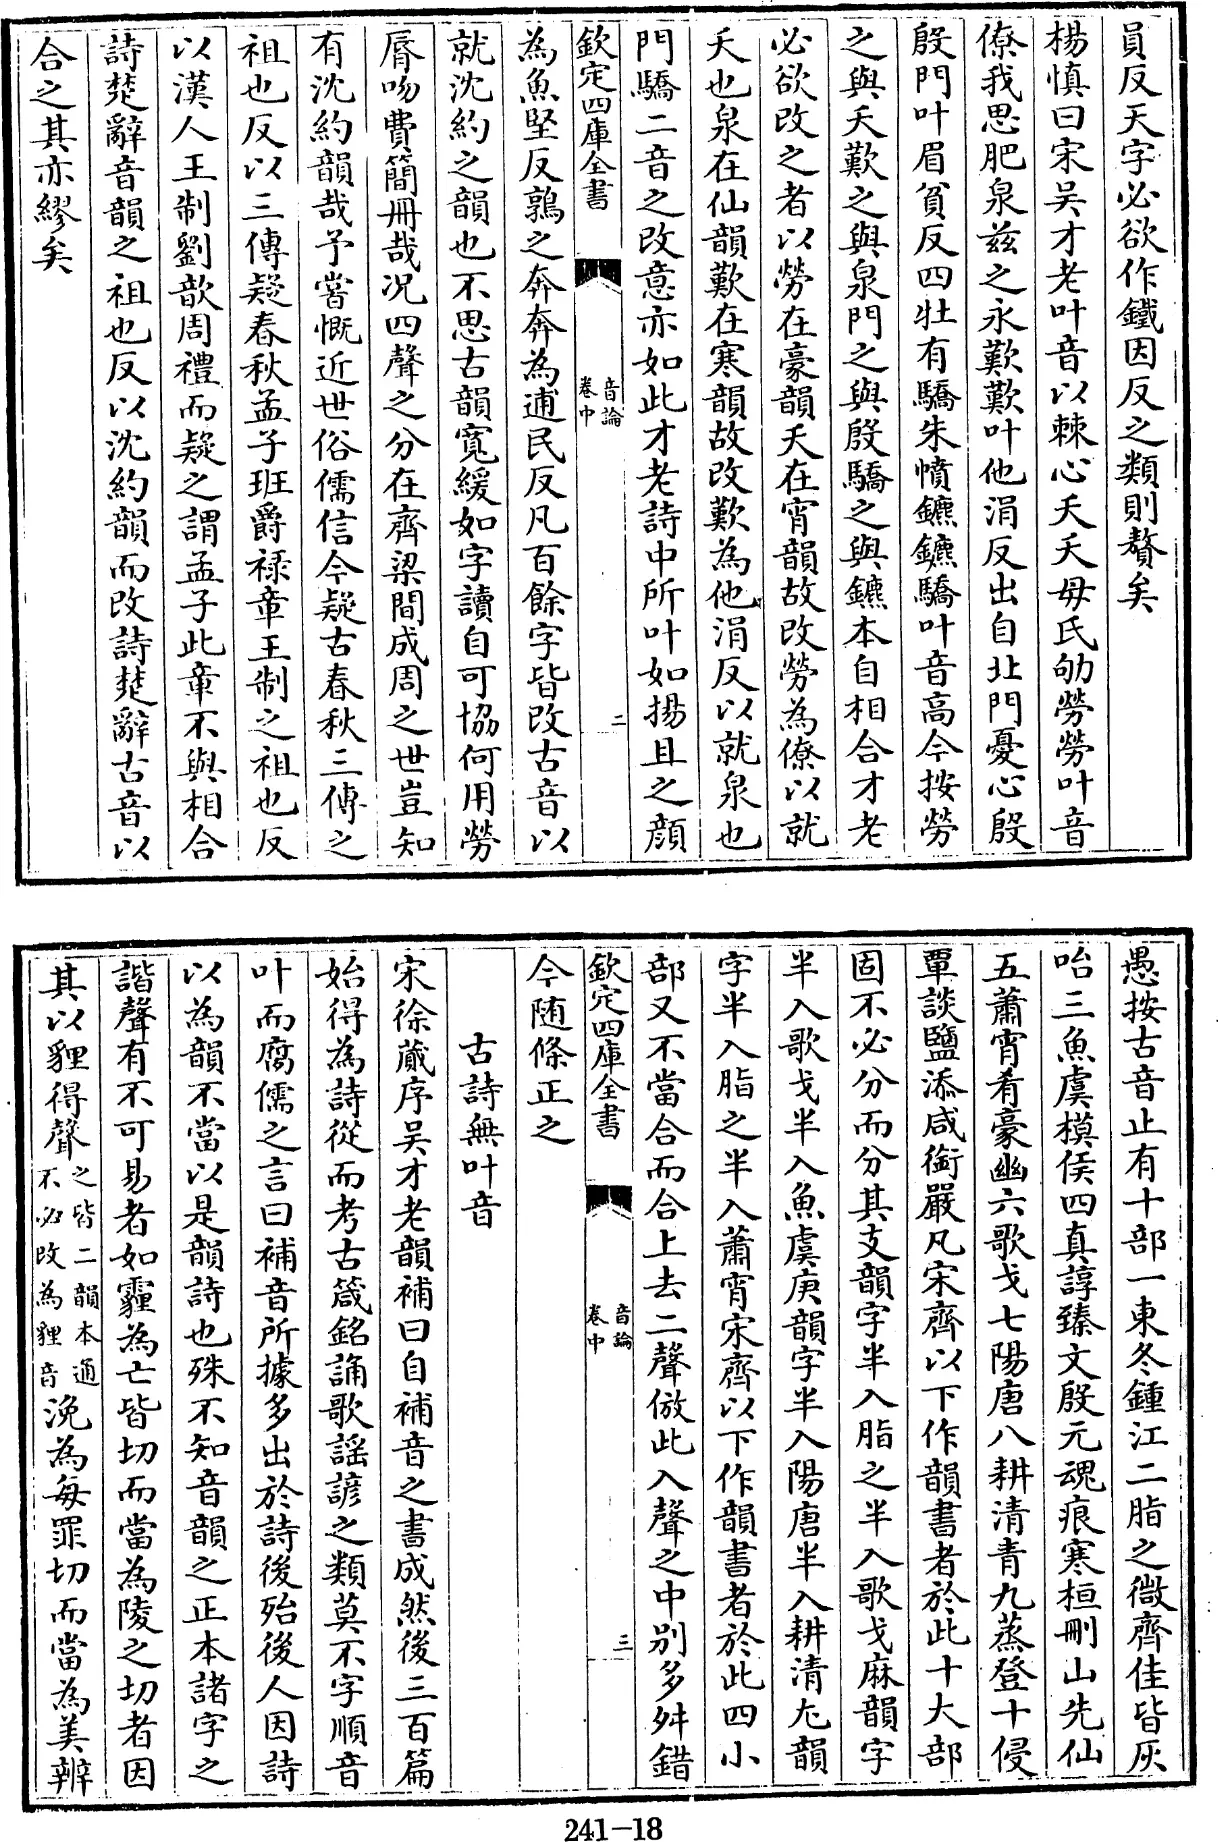 員反天字必欲作鐵因反之類則贅矣
楊慎曰宋吳才老叶音以棘心夭夭毋氏劬勞勞叶音
僚我思肥泉兹之永歎歎叶他涓反出自北門憂心殷
殷門叶眉貧反四牡有驕朱幩鑣鑣驕叶音高今按勞
之與夭歎之與泉門之與殷驕之與鑣本自相合才老
必欲改之者以勞在豪韻夭在宵韻故改勞為僚以就
夭也泉在仙韻歎在寒韻故改歎為他涓反以就泉也
門驕二音之改意亦如此才老詩中所叶如揚且之顔
欽定四庫全書
音論
卷中
二
為魚堅反鶉之奔奔為逋民反凡百餘字皆改古音以
就沈約之韻也不思古韻寬緩如字讀自可協何用勞
脣吻費簡冊哉况四聲之分在齊梁間成周之世豈知
有沈約韻哉予嘗慨近世俗儒信今疑古春秋三傳之
祖也反以三傳疑春秋孟子班爵禄章王制之祖也反
以漢人王制劉歆周禮而疑之謂孟子此章不與相合
詩楚辭音韻之祖也反以沈約韻而改詩楚辭古音以
合之其亦繆矣
愚按古音止有十部一東冬鍾江二脂之微齊佳皆灰
咍三魚虞模侯四真諄臻文殷元魂痕寒桓刪山先仙
五蕭宵肴豪幽六歌戈七陽唐八耕清青九蒸登十侵
覃談鹽添咸銜嚴凡宋齊以下作韻書者於此十大部
固不必分而分其支韻字半入脂之半入歌戈麻韻字
半入歌戈半入魚虞庚韻字半入陽唐半入耕清尤韻
字半入脂之半入蕭宵宋齊以下作韻書者於此四小
部又不當合而合上去二聲倣此入聲之中别多舛錯
欽定四庫全書
音論
卷中
三
今随條正之
古詩無叶音
宋徐蕆序吳才老韻補曰自補音之書成然後三百篇
始得為詩從而考古箴銘誦歌謡諺之類莫不字順音
叶而腐儒之言曰補音所據多出於詩後殆後人因詩
以為韻不當以是韻詩也殊不知音韻之正本諸字之
諧聲有不可易者如霾為亡皆切而當為陵之切者因
其以貍得聲之皆二韻本通不必改為貍音浼為每罪切而當為美辨
241-18